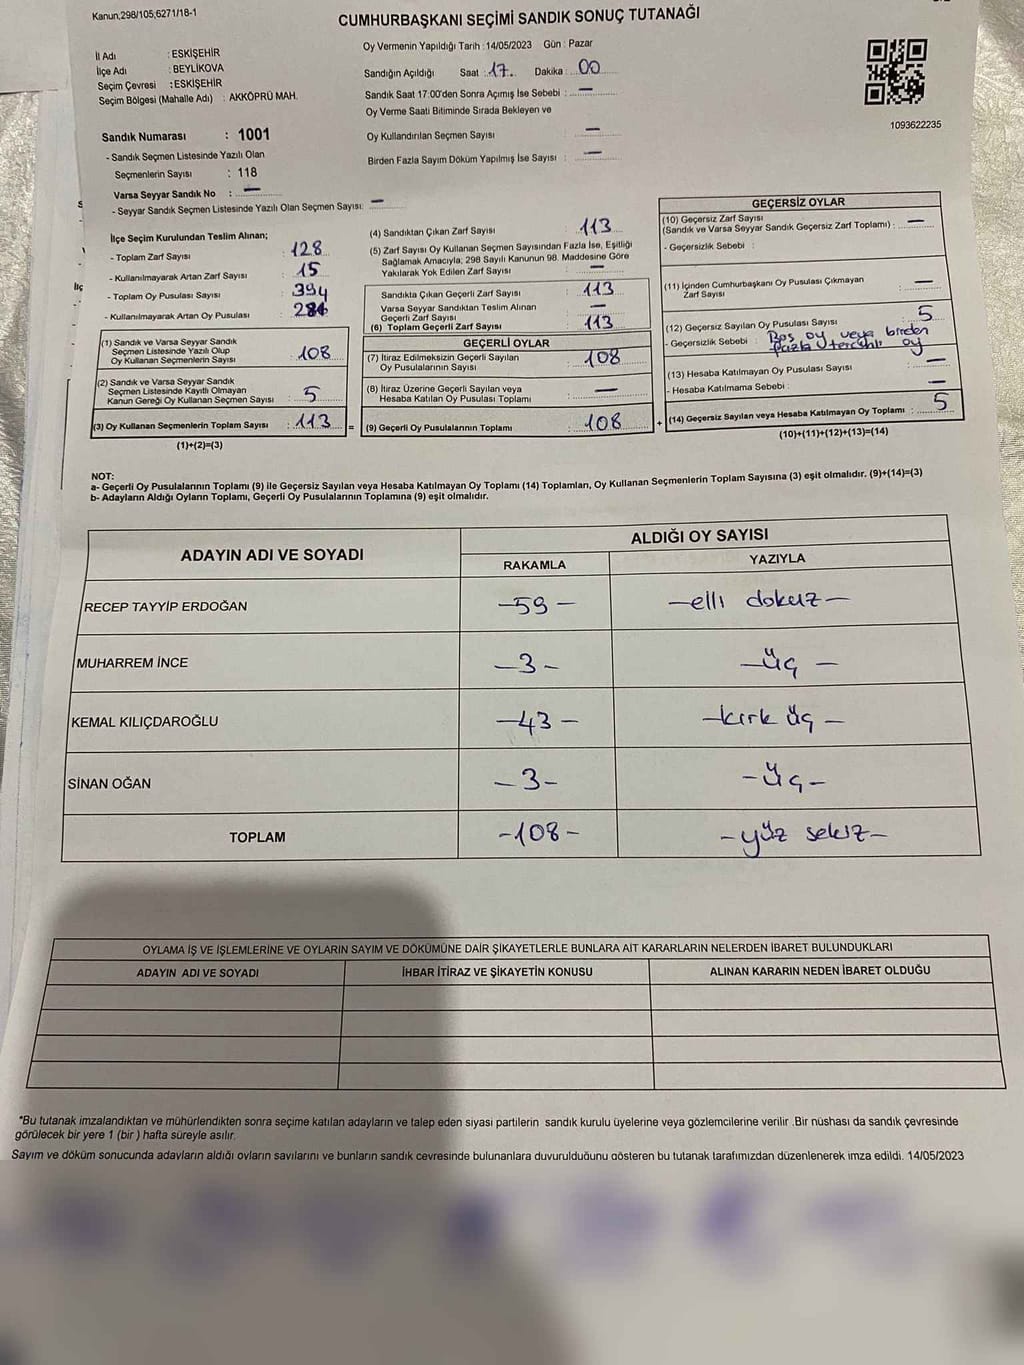 Kanun,298/105;6271/18-1
CUMHURBAŞKANI SEÇİMİ SANDIK SONUÇ TUTANAĞI
İl Adı : ESKİŞEHİR
İlçe Adı : BEYLİKOVA
Seçim Çevresi : ESKİŞEHİR
Seçim Bölgesi (Mahalle Adı) : AKKÖPRÜ MAH.
Sandık Numarası : 1001
- Sandık Seçmen Listesinde Yazılı Olan
Seçmenlerin Sayısı : 118
Varsa Seyyar Sandık No : —
- Seyyar Sandık Seçmen Listesinde Yazılı Olan Seçmen Sayısı: —
Oy Vermenin Yapıldığı Tarih :14/05/2023 Gün : Pazar
Sandığın Açıldığı Saat :17. Dakika : 00
Sandık Saat 17:00'den Sonra Açımış İse Sebebi : —
Oy Verme Saati Bitiminde Sırada Bekleyen ve
Oy Kullandırılan Seçmen Sayısı : —
Birden Fazla Sayım Döküm Yapılmış İse Sayısı : —
1093622235
İlçe Seçim Kurulundan Teslim Alınan;
- Toplam Zarf Sayısı : 128
- Kullanılmayarak Artan Zarf Sayısı : 15
- Toplam Oy Pusulası Sayısı : 394
- Kullanılmayarak Artan Oy Pusulası :
(1) Sandık ve Varsa Seyyar Sandık
Seçmen Listesinde Yazılı Olup
Oy Kullanan Seçmenlerin Sayısı : 108
(2) Sandık ve Varsa Seyyar Sandık
Seçmen Listesinde Kayıtlı Olmayan
Kanun Gereği Oy Kullanan Seçmen Sayısı : 5
(3) Oy Kullanan Seçmenlerin Toplam Sayısı : 113 =
(1)+(2)=(3)
(4) Sandıktan Çıkan Zarf Sayısı : 113
(5) Zarf Sayısı Oy Kullanan Seçmen Sayısından Fazla İse, Eşitliği
Sağlamak Amacıyla, 298 Sayılı Kanunun 98. Maddesine Göre
Yakılarak Yok Edilen Zarf Sayısı : —
Sandıkta Çıkan Geçerli Zarf Sayısı : 113
Varsa Seyyar Sandıktan Teslim Alınan
Geçerli Zarf Sayısı : —
(6) Toplam Geçerli Zarf Sayısı : 113
GEÇERLİ OYLAR
(7) İtiraz Edilmeksizin Geçerli Sayılan
Oy Pusulalarının Sayısı : 108
(8) İtiraz Üzerine Geçerli Sayılan veya
Hesaba Katılan Oy Pusulası Toplamı : —
(9) Geçerli Oy Pusulalarının Toplamı : 108 +
GEÇERSİZ OYLAR
(10) Geçersiz Zarf Sayısı
(Sandık ve Varsa Seyyar Sandık Geçersiz Zarf Toplamı) : —
- Geçersizlik Sebebi :
(11) İçinden Cumhurbaşkanı Oy Pusulası Çıkmayan
Zarf Sayısı : —
(12) Geçersiz Sayılan Oy Pusulası Sayısı : 5
- Geçersizlik Sebebi : Boş oy veya birden
fazla tercihli oy
(13) Hesaba Katılmayan Oy Pusulası Sayısı : —
- Hesaba Katılmama Sebebi : —
(14) Geçersiz Sayılan veya Hesaba Katılmayan Oy Toplamı : 5
(10)+(11)+(12)+(13)=(14)
NOT:
a- Geçerli Oy Pusulalarının Toplamı (9) ile Geçersiz Sayılan veya Hesaba Katılmayan Oy Toplamı (14) Toplamları, Oy Kullanan Seçmenlerin Toplam Sayısına (3) eşit olmalıdır. (9)+(14)=(3)
b- Adayların Aldığı Oyların Toplamı, Geçerli Oy Pusulalarının Toplamına (9) eşit olmalıdır.
ADAYIN ADI VE SOYADI ALDIĞI OY SAYISI
RAKAMLA YAZIYLA
RECEP TAYYİP ERDOĞAN —59— —elli dokuz—
MUHARREM İNCE —3— —üç—
KEMAL KILIÇDAROĞLU —43— —kırk üç—
SİNAN OĞAN —3— —üç—
TOPLAM —108— —yüz sekiz—
OYLAMA İŞ VE İŞLEMLERİNE VE OYLARIN SAYIM VE DÖKÜMÜNE DAİR ŞİKAYETLERLE BUNLARA AİT KARARLARIN NELERDEN İBARET BULUNDUKLARI
ADAYIN ADI VE SOYADI İHBAR İTİRAZ VE ŞİKAYETİN KONUSU ALINAN KARARIN NEDEN İBARET OLDUĞU
*Bu tutanak imzalandıktan ve mühürlendikten sonra seçime katılan adayların ve talep eden siyasi partilerin sandık kurulu üyelerine veya gözlemcilerine verilir .Bir nüshası da sandık çevresinde
görülecek bir yere 1 (bir ) hafta süreyle asılır.
Sayım ve döküm sonucunda adayların aldığı oyların sayılarını ve bunların sandık çevresinde bulunanlara duyurulduğunu gösteren bu tutanak tarafımızdan düzenlenerek imza edildi. 14/05/2023